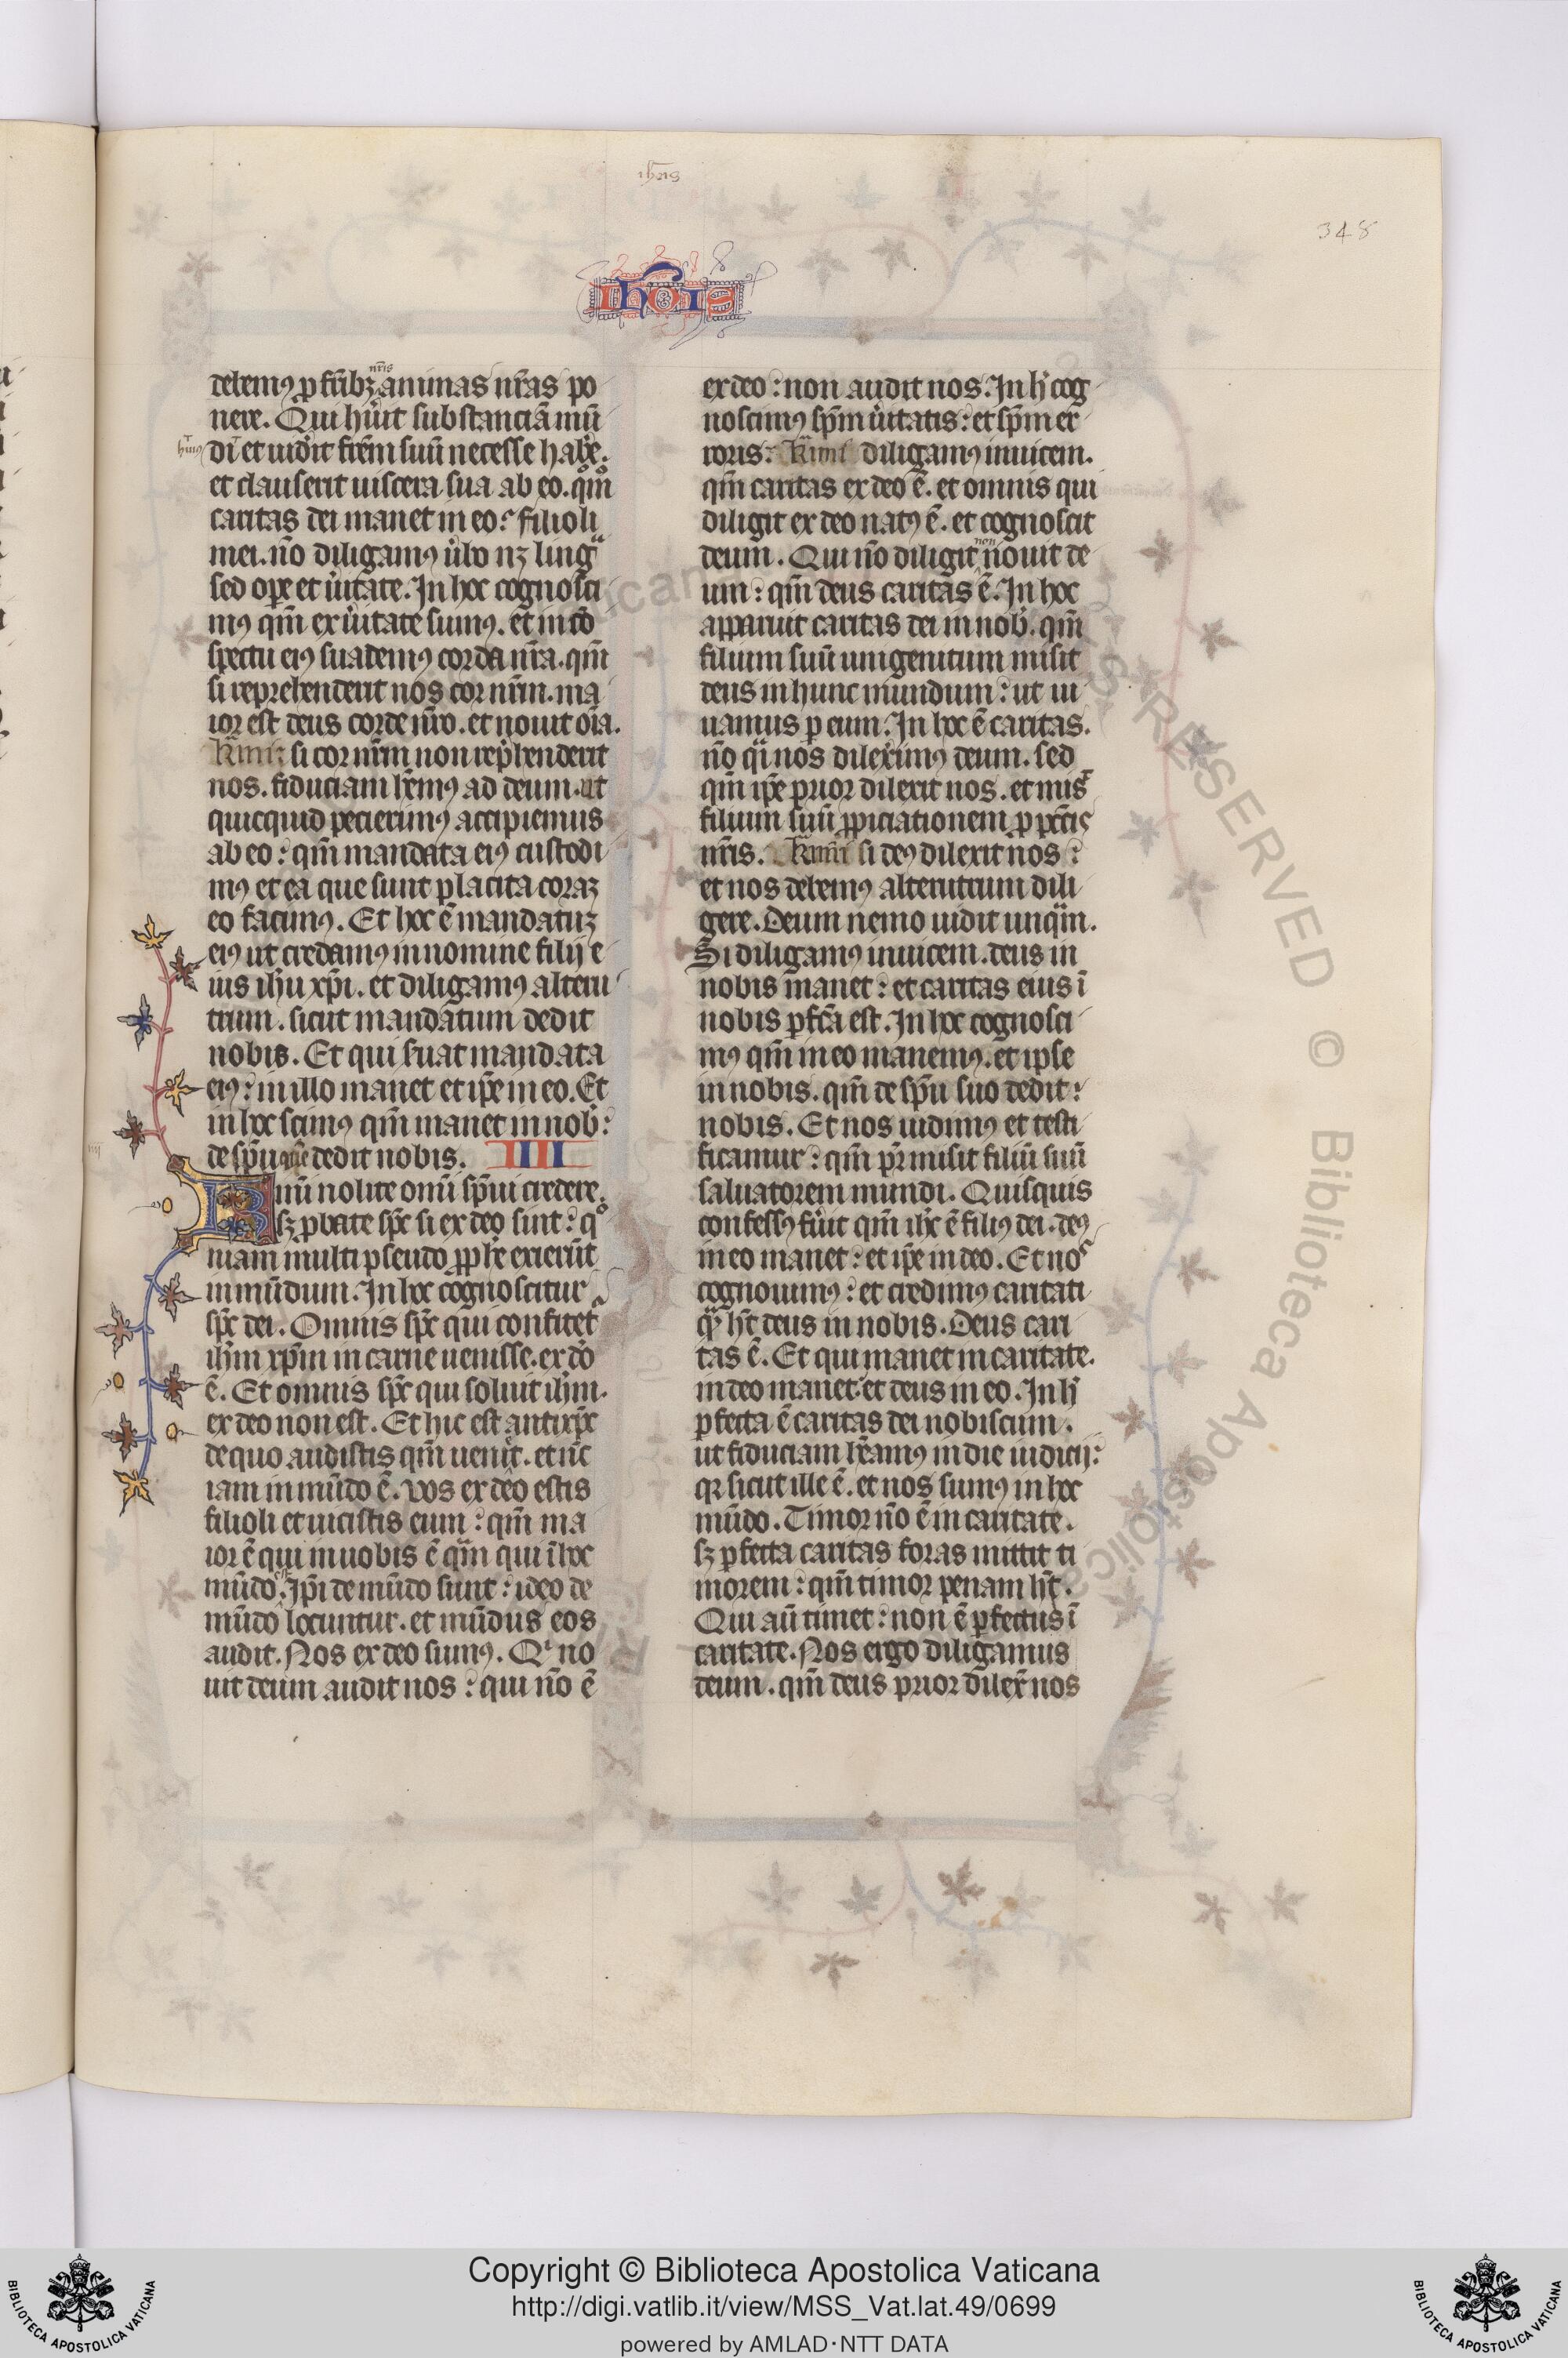 ihīs
348
ihōis
debemꝯ ꝑ fr̄ibꝫ nr̄is animas nr̄as po
nere. Qui hūit substanciā mū
hui9 di et uidit fr̄em suū necesse habe.
et clauserit uiscera sua ab eo. qōm
caritas dei manet in eo? filioli
mei. nō diligamꝯ ūbo nꝫ lingᵃ
sed oꝑe et ūitate. In hoc cognosci
mꝯ qm̄ ex ūitate sumꝯ. et in cō
spectu eiꝯ suademꝯ corda nr̄a. qm̄
si reprehenderit nos cor nr̄m. ma
ior est deus corde nr̄o. et nouit oīa.
Kīmi si cor nr̄m non rep̄henderit
nos. fiduciam hēmꝯ ad deum. ut
quicquid pecierimꝯ accipiemus
ab eo: qm̄ mandata eiꝯ custodi
mꝯ et ea que sunt placita coraꝫ
eo facimꝯ. Et hoc ē mandatuꝫ
eiꝯ ut credamꝯ in nomine filij e
ius ih̄u xp̄i. et diligamꝯ alteru
trum. sicut mandatum dedit
nobis. Et qui ẜuat mandata
eiꝯ: in illo manet et ip̄e in eo. Et
in hoc scimꝯ qm̄ manet in nob̄:
de sp̄u quē dedit nobis. IIII
Kīmi nolite omī sp̄ui credere.
sꝫ ꝓbate sp̄c si ex deo sint: qᵒ
niam multi pseudo ꝓph̄e exierūt
in mūdum. In hoc cognoscitur
sp̄c dei. Omnis sp̄c qui confitet᷑
ih̄m xp̄m in carne uenisse. ex dō
ē. Et omnis sp̄c qui soluit ih̄m.
ex deo non est. Et hic est antixp̄c
de quo audistis qm̄ uenit. et nc̄
iam in mūdo ē. vos ex deo estis
filioli et uicistis eum: qm̄ ma
ior ē qui in uobis ē qᵃm qui ī hoc
mūdo est. Ip̄i de mūdo sunt: ideo de
mūdo locuntur. et mūdus eos
audit. Nos ex deo sumꝯ. Qⁱ no
uit deum audit nos: qui nō ē
ex deo: non audit nos. In hͨ cog
noscimꝯ sp̄m ūitatis: et sp̄m er
roris. Kīmi diligamꝯ inuicem.
qm̄ caritas ex deo ē. et omnis qui
diligit ex deo natꝯ ē. et cognoscit
deum. Qui nō diligit non nouit de
um: qm̄ deus caritas ē. In hoc
apparuit caritas dei in nob̄. qm̄
filium suū unigenitum misit
deus in hunc mundum: ut ui
uamus ꝑ eum. In hoc ē caritas.
nō qᵃi nos dilexīmꝯ deum. sed
qm̄ ip̄e prior dilexit nos. et misͭ
filium suū ꝓpiciationem ꝓ pctīs
nr̄is. Kīmi si deꝯ dilexit nos:
et nos debemꝯ alterutrum dili
gere. Deum nemo uidit unqᵃm.
Si diligamꝯ inuicem. deus in
nobis manet: et caritas eius ī
nobis ꝑfcā est. In hoc cognosci
mꝯ qm̄ in eo manemꝯ. et ipse
in nobis. qm̄ de sp̄u suo dedit:
nobis. Et nos uidimꝯ et testi
ficamur: qm̄ pr̄ misit filiū suū
saluatorem mundi. Quisquis
confessꝯ fūit qm̄ ih̄c ē filiꝯ dei. deꝯ
in eo manet: et ip̄e in deo. Et noˢ
cognouimꝯ: et credimꝯ caritati
qᵃ hͭ deus in nobis. Deus cari
tas ē. Et qui manet in caritate.
in deo manet. et deus in eo. In hͨ
ꝑfecta ē caritas dei nobiscum.
ut fiduciam hēamꝯ in die iudicij:
qꝛ sicut ille ē. et nos sumꝯ in hoc
mūdo. Timor nō ē in caritate.
sꝫ ꝑfecta caritas foras mittit ti
morem: qm̄ timor penam hͭ.
Qui aū timet: non ē ꝑfectus ī
caritate. Nos ergo diligamus
deum. qm̄ deus prior dilex̄ nos
RESERVED © Biblioteca Apostolica
Copyright © Biblioteca Apostolica Vaticana
http://digi.vatlib.it/view/MSS_Vat.lat.49/0699
powered by AMLAD·NTT DATA
BIBLIOTECA APOSTOLICA VATICANA
BIBLIOTECA APOSTOLICA VATICANA